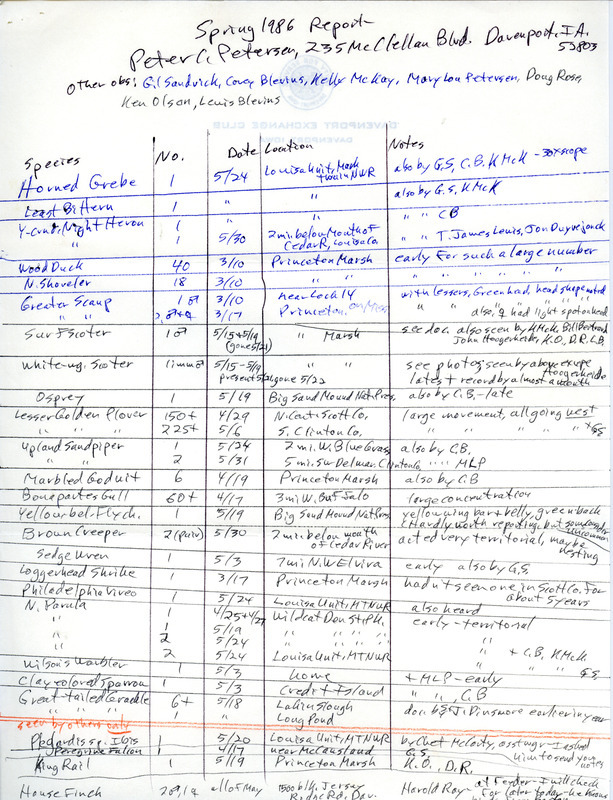 Spring 1986 Report-
Peter C. Petersen, 235 McClellan Blvd. Davenport, IA.
52803
Other obs: Gil Sandvick, Corey Blevins, Kelly McKay, Mary Lou Petersen, Doug Rose,
Ken Olson, Lewis Blevins
DAVENPORT EXCHANGE CLUB
Species No. Date Location Notes
Horned Grebe 1 5/24 Louisa Unit, Mark Twain NWR also by G.S, C.B, KMcK - 30x scope
Least Bittern 1 " " also by G.S, KMcK
Y-crnd. Night Heron 1 " " " " CB
" 1 5/30 2 mi. below Mouth of Cedar R, Louisa Co. " " T. James Lewis, Jon Duyvejonck
Wood Duck 40 3/10 Princeton Marsh early for such a large number
N. Shoveler 18 3/10 " " " " " " "
Greater Scaup 1♂ 3/10 near Lock 14 with lessers, Green head, head shape noted
" " 3/17 Princeton, on Miss. also, ♀ had light spot on head
Surf Scoter 1♂ 5/15+5/19 (gone 5/21) " Marsh see doc. also seen by KMcK, Bill Bertrand
John Hoogerheide, K.O, D.R, L.B.
White-wg. Scoter 1 imm♂ 5/15-5/19 present 5/21 gone 5/22 " " see photos, seen by above except Hoogerheide
latest record by almost a month
Osprey 1 5/19 Big Sand Mound Nat. Pres. also by C.B.-late
Lesser Golden Plover 150+ 4/29 N. Cent. Scott Co. large movement, all going west
" " " 225+ 5/6 S. Clinton Co. " " " " " +GS
Upland Sandpiper 1 5/24 2 mi. W. Blue Grass also by C.B.
" " 2 5/31 5 mi. SW Delmar, Clinton Co " " MLP
Marbled Godwit 6 4/19 Princeton Marsh also by C.B
Bonapartes Gull 60+ 4/17 3 mi W. Buffalo large concentration
Yellow-bel. Flych. 1 5/19 Big Sand Mound Nat. Pres. yellow wing bar + belly, green back
(Hardly worth reporting, but some consider uncommon)
Brown Creeper 2 (pair) 5/30 2 mi. below mouth of Cedar River acted very territorial, maybe nesting
Sedge Wren 1 5/3 7 mi N.W. Elvira early also by G.S.
Loggerhead Shrike 1 3/17 Princeton Marsh hadn't seen one in Scott Co. for
about 5 years
Philadelphia Vireo 1 5/24 Louisa Unit, MTNWR also heard
N. Parula 1 4/25+4/27 Wildcat Den St. Pk. early-territorial
" 1 5/19 " "
" 2 5/24 " "
" 2 5/24 Louisa Unit, MTNWR " + C.B, KMcK,
Wilson's Warbler 1 5/3 home + MLP-early GS
Clay-colored Sparrow 1 5/3 Credit Island " " , C.B
Great-tailed Grackle 6+ 5/18 Lakin Slough doc. by J. Dinsmore earlier in year
" " " " Long Pond
seen by others only
Plegadis sp. Ibis 1 5/20 Louisa Unit, MTNWR by Chet McCarty, asst mgr - I asked
Peregrine Falcon 1 4/17 near McCausland G.S. him to send you notes
King Rail 1 5/19 Princeton Marsh K.O., D.R.
House Finch 2♂, 1♀ all of May 1500 blk. Jersey Ridge Rd. Dav. Herold Ray - at feeder - I will check